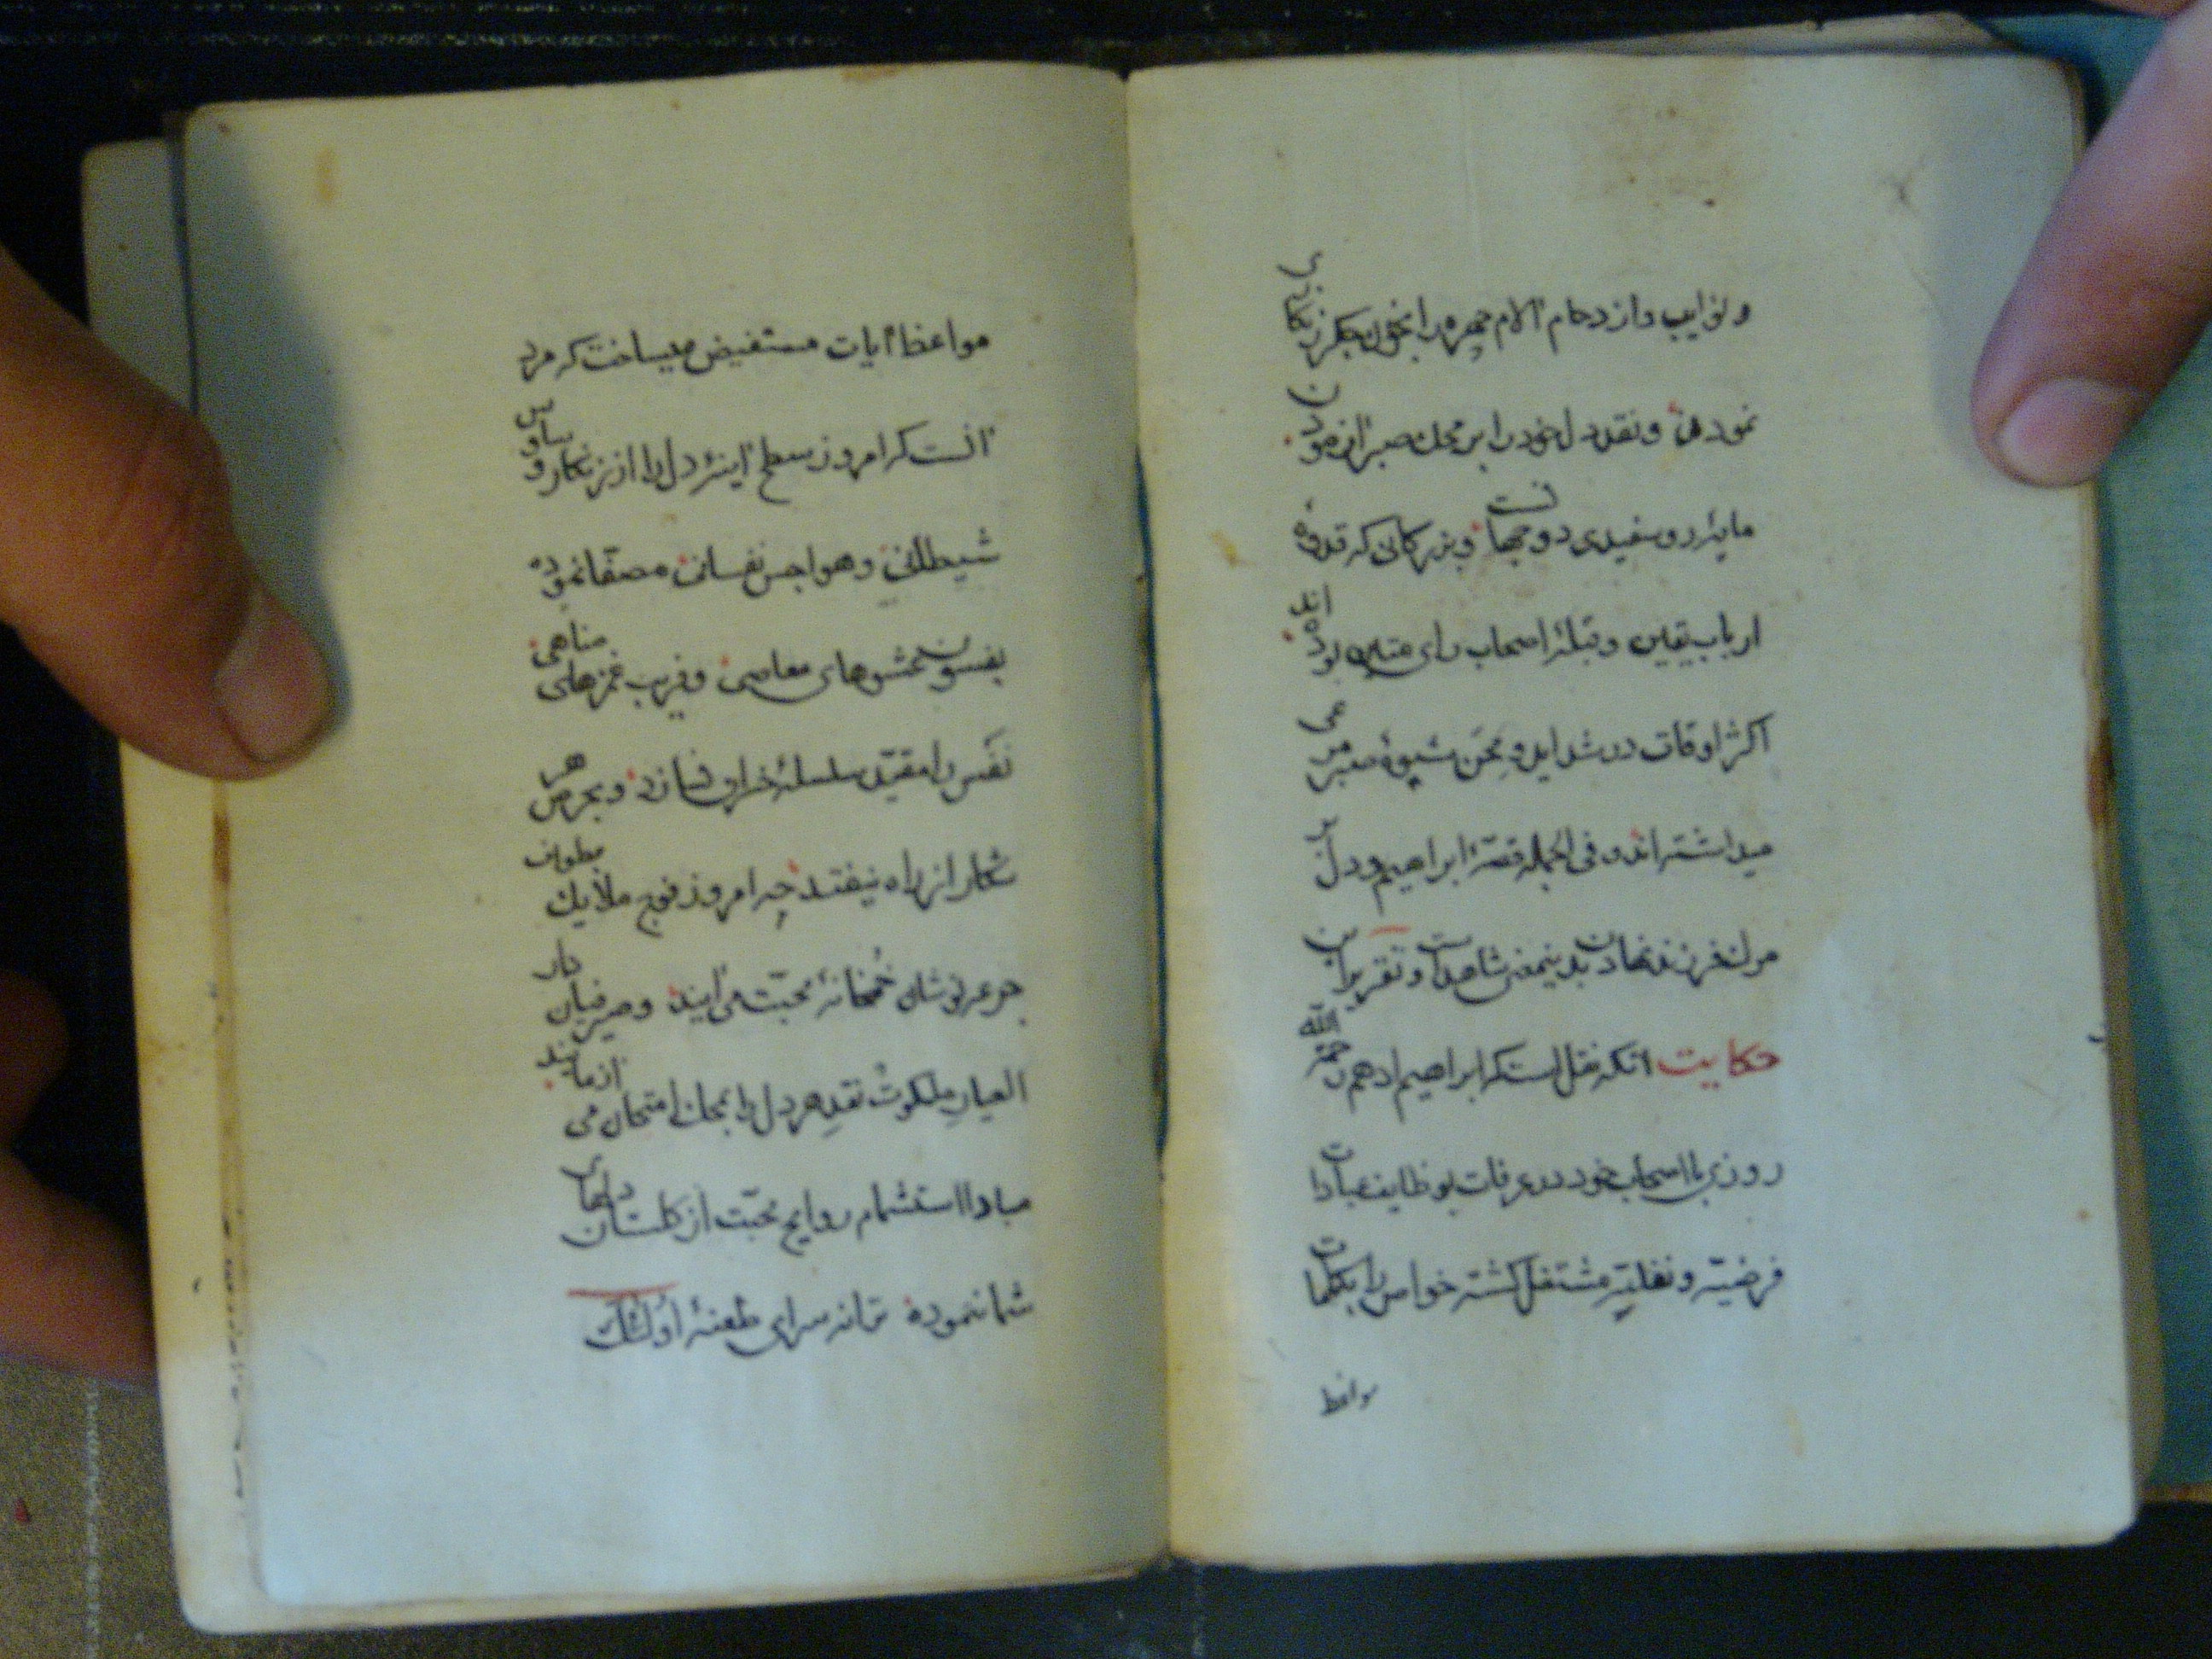 و نوایب و ازدحام آلام چهره را بخون جگر نکاری
نمودن و نقد دل خود را بر محک صبر آزمودن
مایهٔ رو سفیدی دو جهانست و بزرکانی که قدوهٔ
ارباب یقین و قبلهٔ اصحاب رای متین بوده اند
اکثر اوقات در شداید و محن شیوهٔ صبر مرعی
میداشته اند و فی الجمله قصهٔ ابراهیم و دل بر
مرک فرزند نهادن بدینمعنی شاهدست و تقریر این
حکایت آنکه نقل است که ابراهیم ادهم رحمه الله
روزی با اصحاب خود در عرفات بوظایف عبادات
فرضیه و نفلیه مشتغل کشته خواص را بکلمات
مواعظ
مواعظ آیات مستفیض میساخت که مرد
آنست که امروز سطح آینهٔ دل را از زنکار وساوس
شیطانی و هواجس نفسانی مصفا نموده
بفسون عشوهای معاصی و فریب غمزهای مناهی
نفس را مقید سلسلهٔ خرابی نسازد و بحرص هر
شکار از راه نیفتد چه امروز فوج ملایک بطواف
جرعه نوشان خمخانهٔ محبت می آیند و صیرفیان دار
العیار ملکوت نقد هر دل را بمحک امتحان می آزمایند
مبادا استشمام روایح محبت از کلستان دلهای
شما ننموده ترانه سرای طعنهٔ اولئک